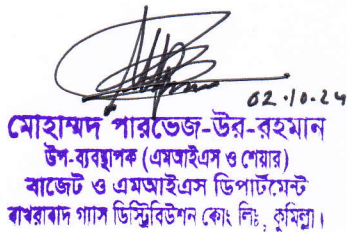 02.10.24
মোহাম্মদ পারভেজ-উর-রহমান
উপ-ব্যবস্থাপক (এমআইএস ও শেয়ার)
বাজেট ও এমআইএস ডিপার্টমেন্ট
বাখরাবাদ গ্যাস ডিস্ট্রিবিউশন কোং লিঃ, কুমিল্লা।